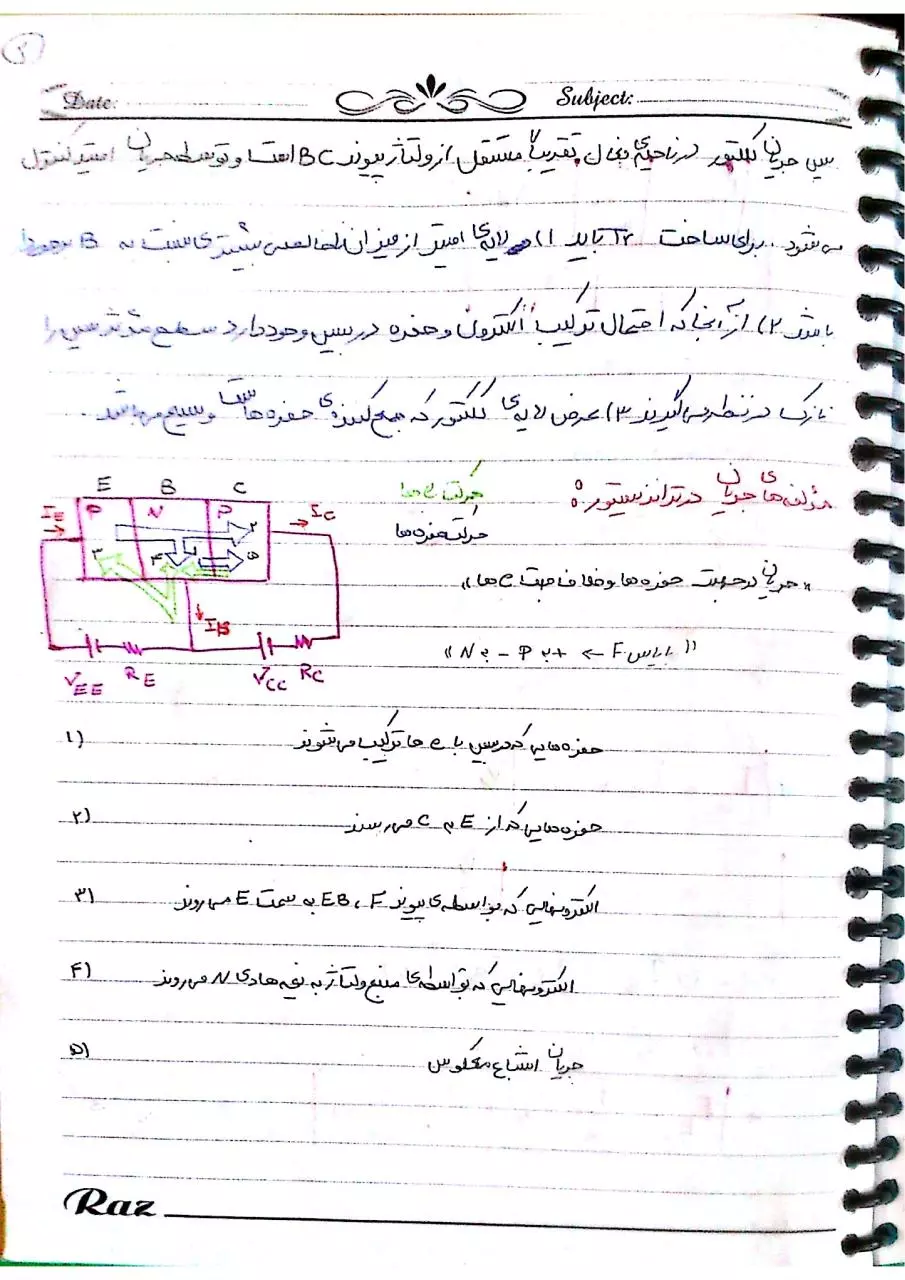 Date:
Subject:
پس جریان کلکتور در ناحیه‌ی فعال تقریباً مستقل از ولتاژ پیوند BC است و توسط جریان امیتر کنترل
می شود. برای ساخت Tr باید ۱) لایه‌ی امیتر از میزان ناخالصی بیشتری نسبت به B برخوردار
باشد ۲) از آنجا که احتمال ترکیب الکترون و حفره در بیس وجود دارد سطح بیس را
نازک در نظر می‌گیرند ۳) عرض لایه‌ی کلکتور که جمع کننده‌ی حفره هاست وسیع می باشد.
مؤلفه های جریان در ترانزیستور:
حرکت e ها
حرکت حفره ها
E B C
P N P
IE
IC
۲
۳
۴
۵
IB
VEE RE VCC RC
"جریان در جهت حفره ها و خلاف جهت e ها"
"بایاس F → + به P - به N"
۱) حفره هایی که در بیس با e ها ترکیب می شوند
۲) حفره هایی که از E به C می رسند
۳) الکترونهایی که بواسطه‌ی پیوند EB، F به سمت E می روند
۴) الکترونهایی که بواسطه‌ی منبع ولتاژ به نیمه هادی N می روند
۵) جریان اشباع معکوس
Raz